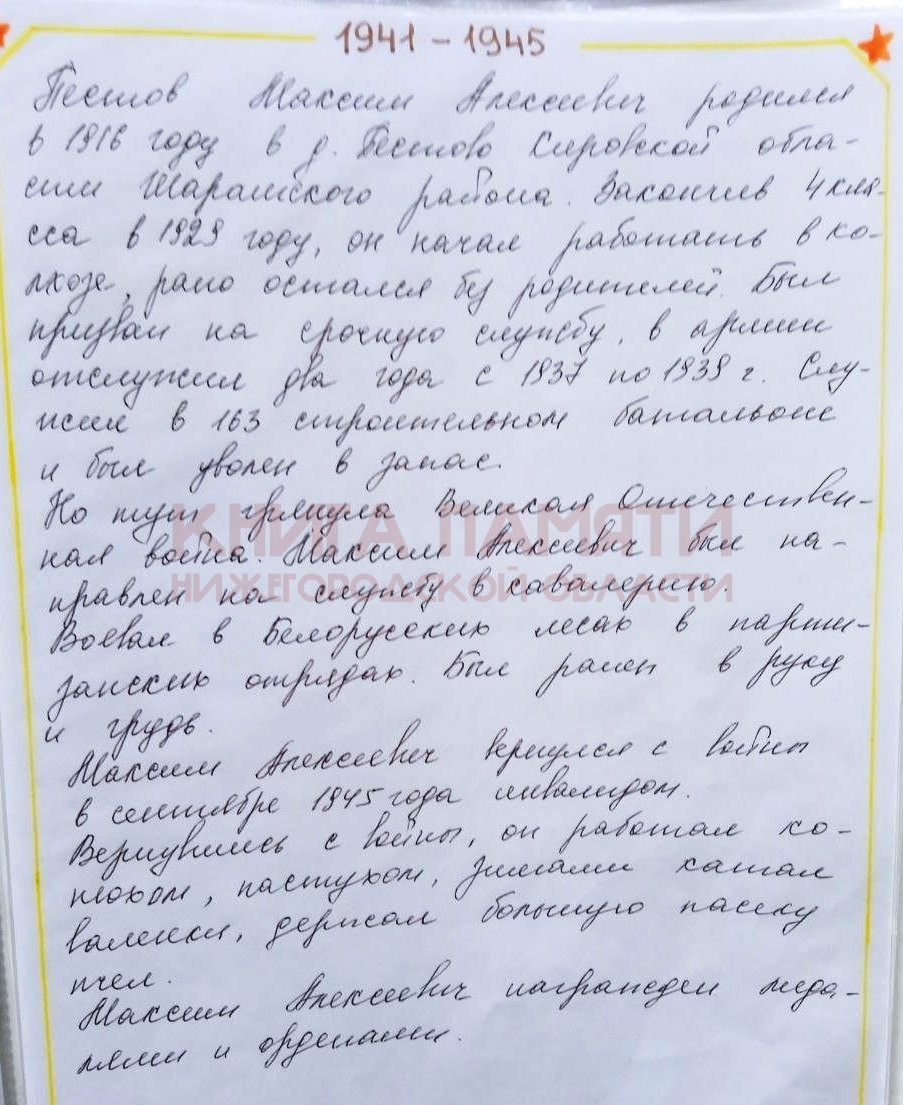 1941 - 1945
Пестов Максим Алексеевич родился
в 1916 году в д. Пестово Кировской обла-
сти Шарангского района. Закончив 4 кла-
сса в 1929 году, он начал работать в ко-
лхозе, рано остался без родителей. Был
призван на срочную службу, в армии
отслужил два года с 1937 по 1939 г. Слу-
жил в 163 строительном батальоне
и был уволен в запас.
Но тут грянула Великая Отечествен-
ная война. Максим Алексеевич был на-
КНИГА ПАМЯТИ
правлен на службу в кавалерию.
НИЖЕГОРОДСКОЙ ОБЛАСТИ
Воевал в Белорусских лесах в парти-
занских отрядах. Был ранен в руку
и грудь.
Максим Алексеевич вернулся с войны
в сентябре 1945 года инвалидом.
Вернувшись с войны, он работал ко-
нюхом, пастухом, зимами катал
валенки, держал большую пасеку
пчел.
Максим Алексеевич награжден меда-
лями и орденами.